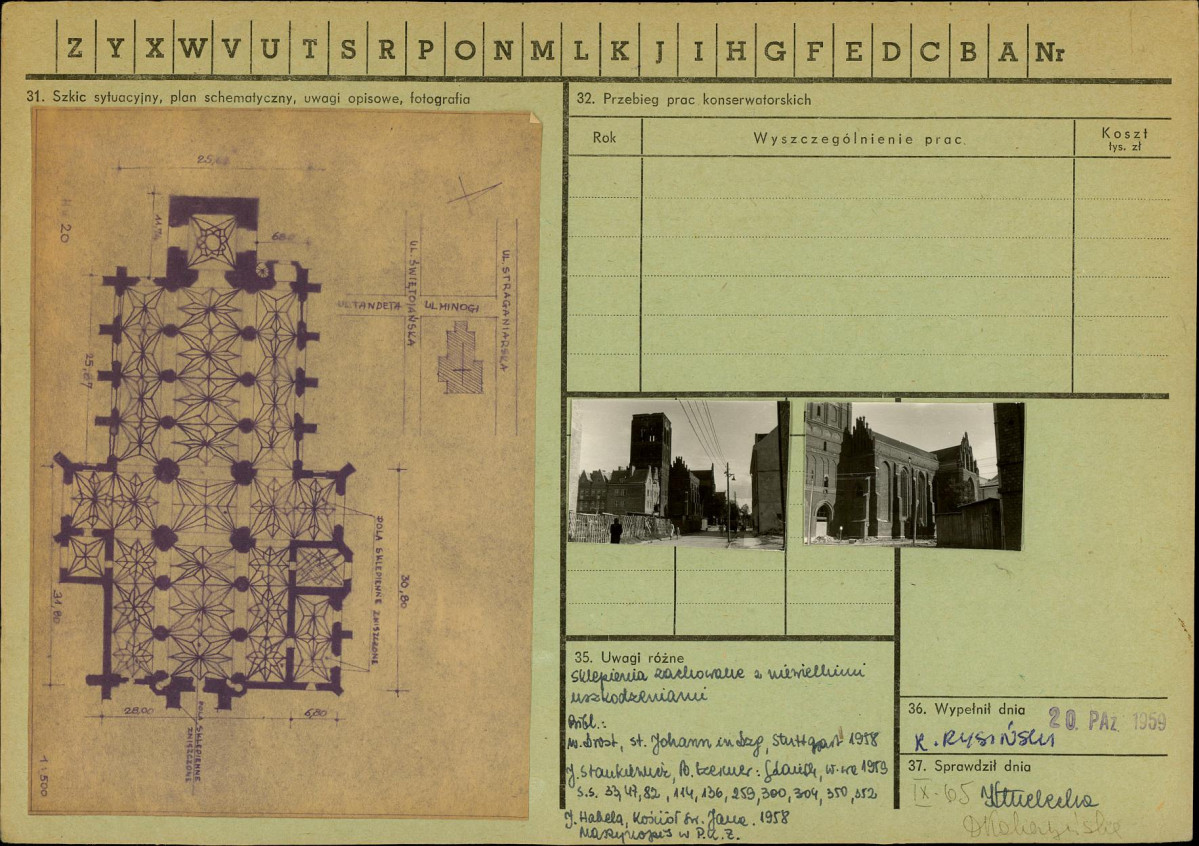 Z Y X W V U T S R P O N M L K J I H G F E D C B A Nr
31. Szkic sytuacyjny, plan schematyczny, uwagi opisowe, fotografia
25,
11,
6,80
Nr 20
UL. ŚWIĘTOJAŃSKA
UL. STRAGANIARSKA
UL TANDETA
UL MINOGI
25,87
POLA SKLEPIENNE ZNISZCZONE
30,80
31,80
28,00
6,80
POLA SKLEPIENNE
ZNISZCZONE
1:500
32. Przebieg prac konserwatorskich
Rok
Wyszczególnienie prac
Koszt
tys. zł
35. Uwagi różne
sklepienia zachowane z niewielkimi
uszkodzeniami
Bibl.:
W. Drost, St. Johann in Dzg, Stuttgart 1958
J. Stankiewicz, B. Szermer: Gdańsk, W-wa 1959
s.s. 33, 47, 82, 114, 136, 259, 300, 304, 350, 352
J. Habela, Kościół św. Jana. 1958
Maszynopis w P.K.Z.
36. Wypełnił dnia
20 PAŹ 1959
K. RYSIŃSKI
37. Sprawdził dnia
IX-65